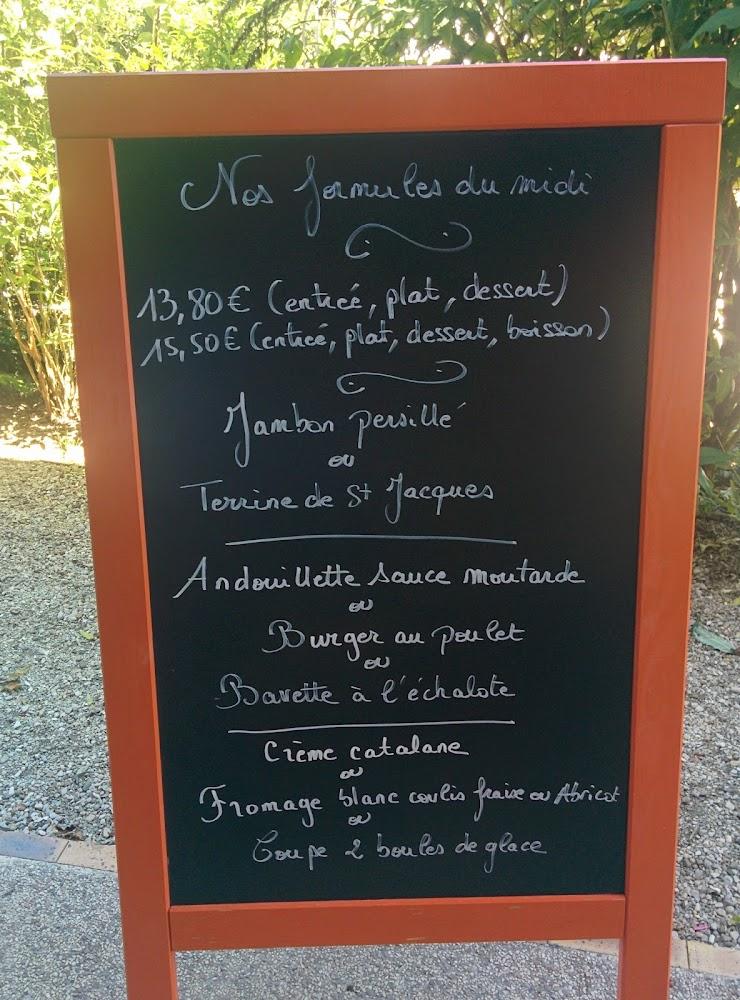 Nos formules du midi
13,80€ (entrée, plat, dessert)
15,50€ (entrée, plat, dessert, boisson)
Jambon persillé
ou
Terrine de St Jacques
Andouillette sauce moutarde
ou
Burger au poulet
ou
Bavette à l'échalote
Crème catalane
ou
Fromage blanc coulis fraise ou Abricot
ou
Coupe 2 boules de glace